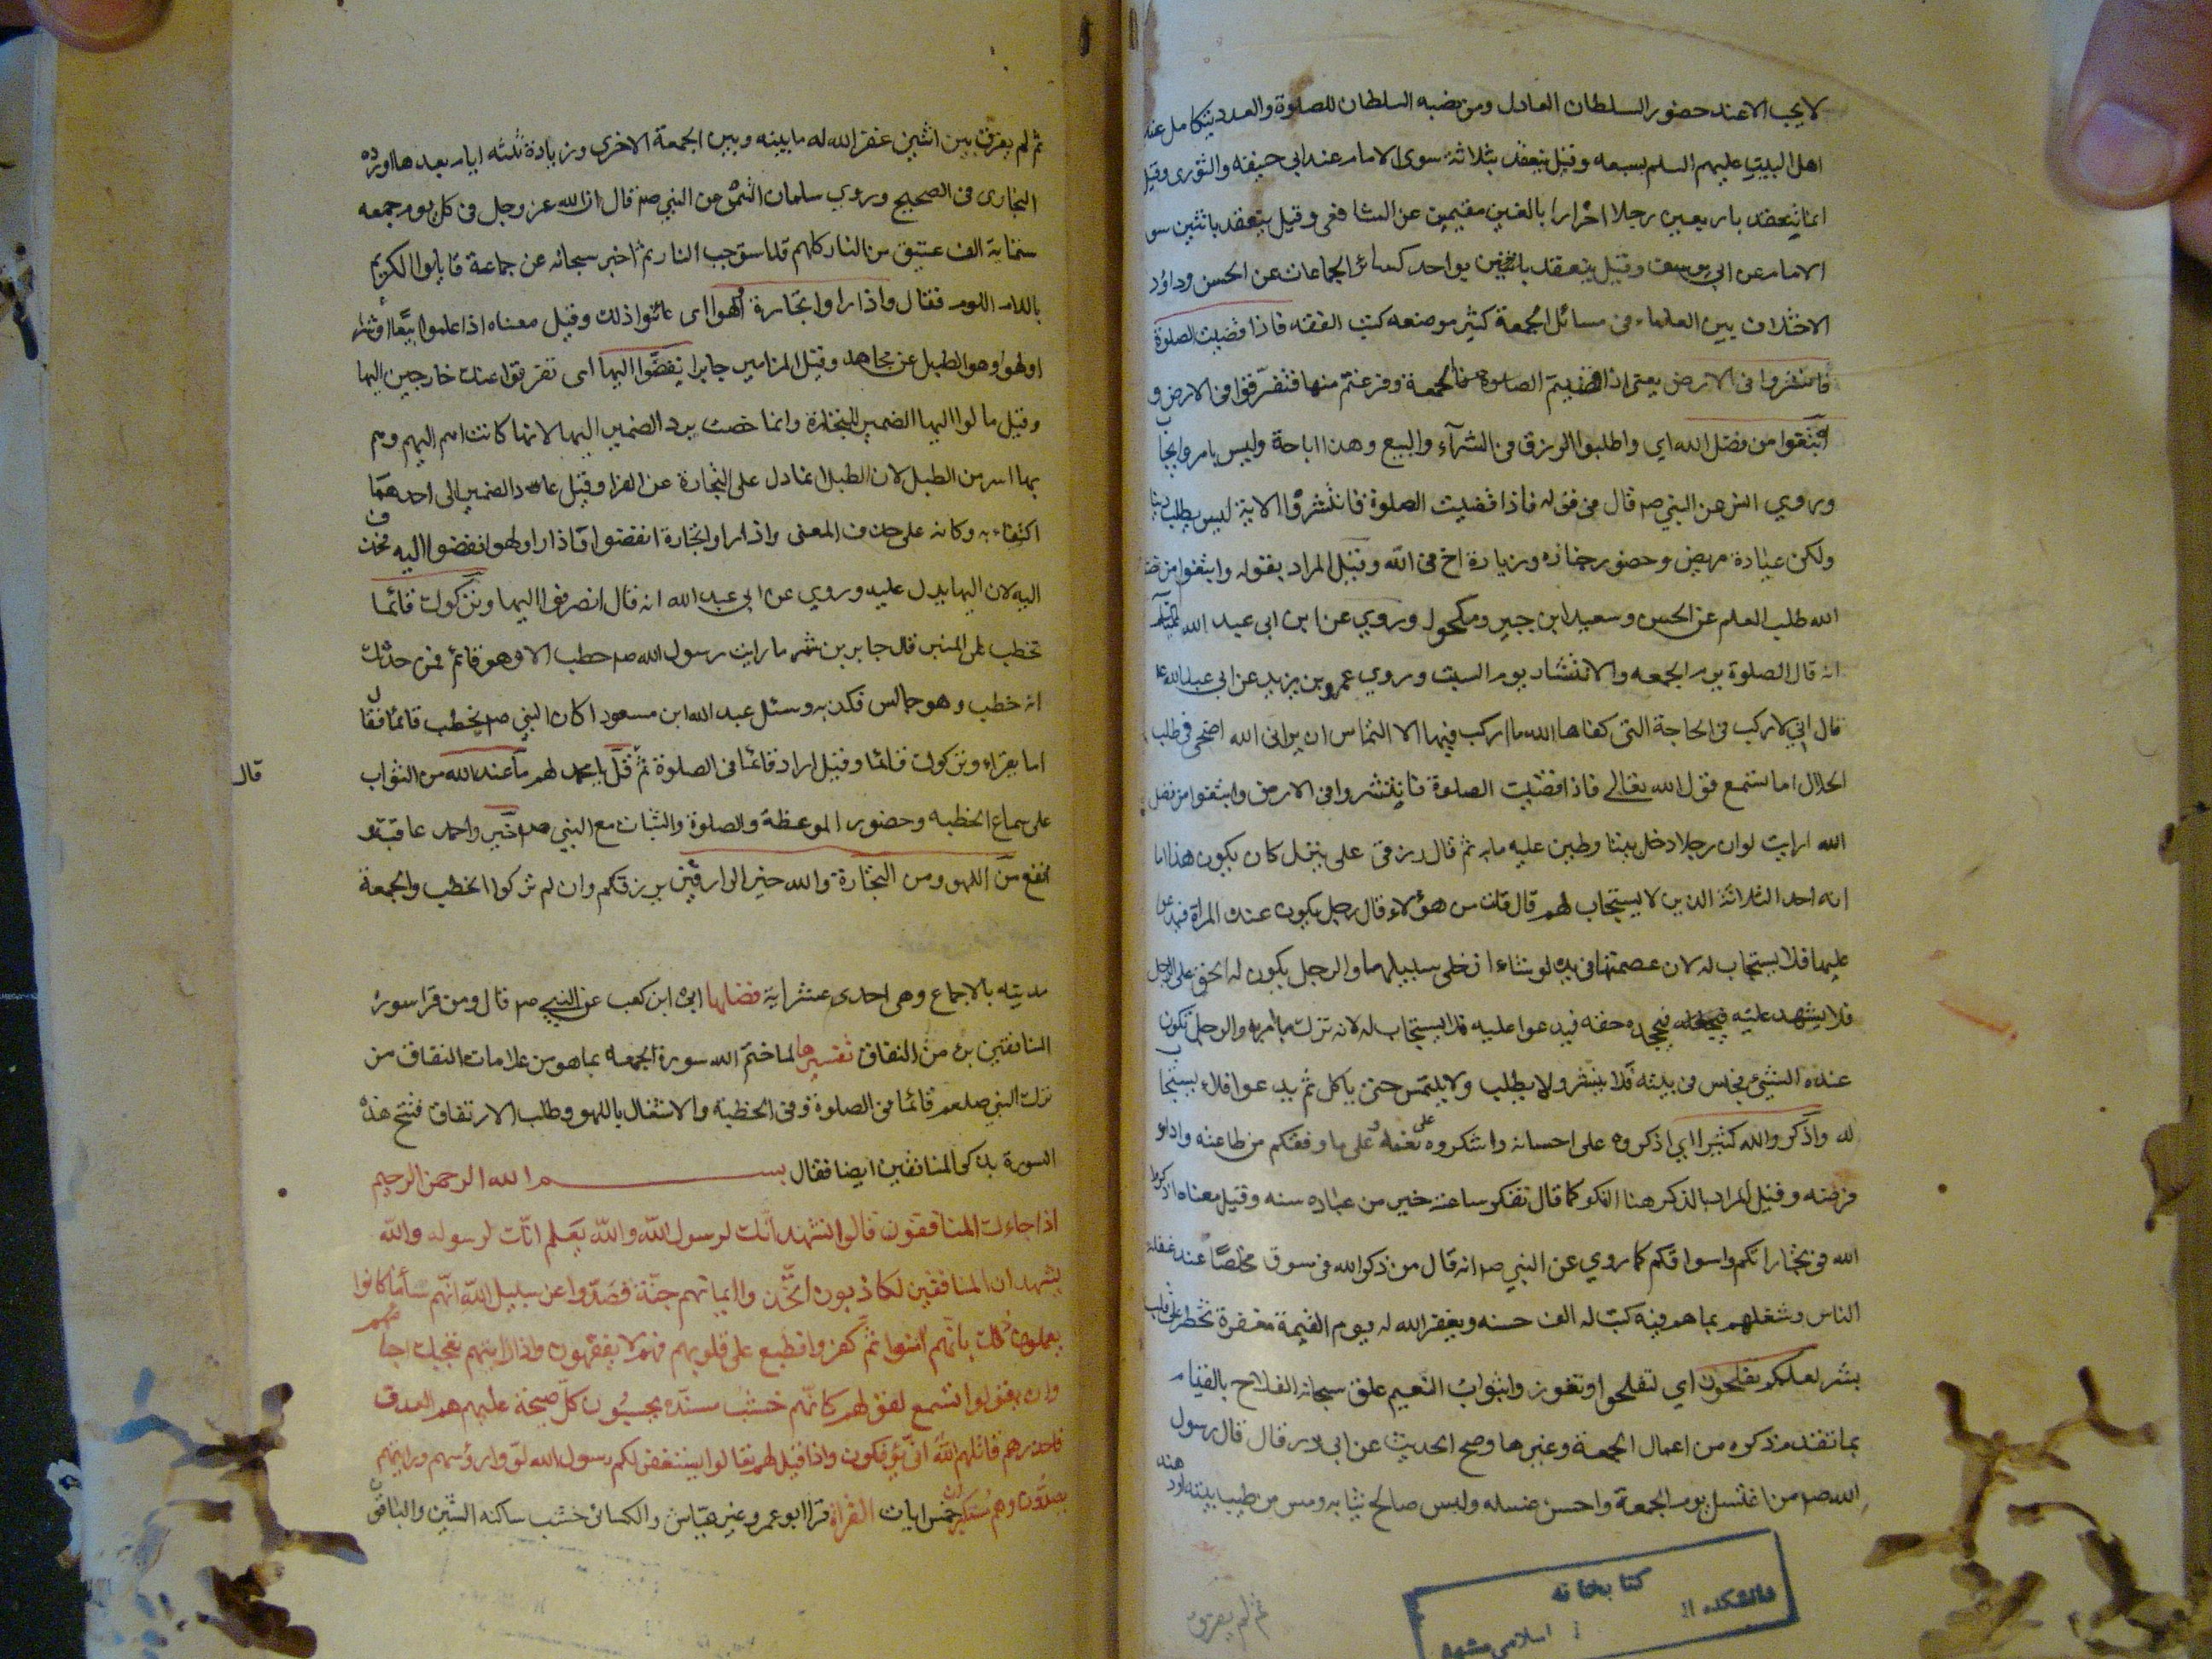 لا يجب الا عند حضور السلطان العادل ومن نصبه السلطان للصلوة والعدد يتكامل عند
اهل البيت عليهم السلم بسبعه وقيل ينعقد بثلاثة سوى الامام عند ابي حنيفه والثوري وقيل
انما ينعقد باربعين رجلا احرارا بالغين مقيمين عن الشافعي وقيل ينعقد باثنين سو
الامام عن ابي يوسف وقيل ينعقد باثنين بواحد كسائر الجماعات عن الحسن وداود
الاختلاف بين العلماء في مسائل الجمعة كثير موضعه كتب الفقه فاذا قضيت الصلوة
فانتشروا في الارض يعني اذا قضيتم الصلوة الجمعة وفرغتم منها فتفرقوا في الارض و
ابتغوا من فضل الله اي واطلبوا الرزق في الشرآء والبيع وهذا اباحة وليس بامر وايجاب
وروي انس عن النبي صم قال في قوله فاذا قضيت الصلوة فانتشروا الاية ليس بطلب دنيا
ولكن عيادة مريض وحضور جنازه وزيادة اخ في الله وقيل المراد بقوله وابتغوا من فضل
الله طلب العلم عن الحسن وسعيد ابن جبير ومكحول وروي عن ابن ابي عبد الله
انه قال الصلوة يوم الجمعه والانتشار يوم السبت وروي عمرو بن يزيد عن ابي عبد الله ع
قال اني لاركب في الحاجة التي كفاها الله ما اركب فيها الا التماس ان يراني الله اضحى في طلب
الحلال اما تسمع قول الله تعالى فاذا قضيت الصلوة فانتشروا في الارض وابتغوا من فضل
الله ارايت لو ان رجلا دخل بيتا وطين عليه بابه ثم قال رزقي على ينزل كان يكون هذا اما
انه احد الثلاثة الذين لا يستجاب لهم قال قلت من هؤلاء قال رجل يكون عنده المراة فيدعو
عليها فلا يستجاب له لان عصمتها في يده لو شاء ان خلى سبيلها والرجل يكون له الحق على الرجل
فلا يشهد عليه فيجحده حقه فيدعوا عليه فلا يستجاب له لانه ترك ما امر به والرجل تكون
عنده الشيئ فيجلس في بيته فلا ينتشر ولا يطلب ولا يلتمس حتى ياكل ثم يدعوا فلا يستجاب
له واذكروا الله كثيرا اي اذكروه على احسانه واشكروه على نعمه وعلى ما وفقكم من طاعته واداء
فرضه وقيل المراد بالذكر هنا الفكر كما قال تفكر ساعة خير من عباده سنه وقيل معناه اذكروا
الله في تجاراتكم واسواقكم كما روي عن النبي صم انه قال من ذكر الله في سوق مخلصا عند غفلة
الناس وشغلهم بما هم فيه كتب له الف حسنه ويغفر الله له يوم القيمة مغفرة تخطر على قلب
بشر لعلكم تفلحون اي لتفلحوا وتفوزوا بثواب النعيم علق سبحانه الفلاح بالقيام
بما تقدم ذكره من اعمال الجمعة وغيرها وصح الحديث عن ابي ذر قال قال رسول
الله صم من اغتسل يوم الجمعة واحسن غسله ولبس صالح ثيابه ومس من طيب بيته او دهنه
ثم لم يفرق
كتابخانه
دانشكده ا
اسلامى مشهد
ثم لم يفرق بين اثنين غفر الله له ما بينه وبين الجمعة الاخرى وزيادة ثلثه ايام بعدها اورده
البخاري في الصحيح وروي سلمان التيمي عن النبي صم قال ان لله عز وجل في كل يوم جمعه
ستماية الف عتيق من النار كلهم قد استوجب النار ثم اخبر سبحانه عن جماعة قابلوا الكريم
باللام اللوم فقال واذا راوا تجارة او لهوا اي عاينوا ذلك وقيل معناه اذا علموا بيعا او شرا
او لهوا وهو الطبل عن مجاهد وقيل المزامير جابر انفضوا اليها اي تفرقوا عنك خارجين اليها
وقيل مالوا اليها الضمير للتجارة وانما خصت برد الضمير اليها لانها كانت اهم اليهم وهم
بها اسر من الطبل لان الطبل انما دل على التجارة عن الفرا وقيل عاد الضمير الى احدهما
اكتفاء به وكانه على حذف المعنى واذا راوا تجارة انفضوا واذا راوا لهوا انفضوا اليه فحذف
اليه لان اليها يدل عليه وروي عن ابي عبد الله انه قال انصرفوا اليها وتركوك قائما
تخطب على المنبر قال جابر بن سمره ما رايت رسول الله صم خطب الا وهو قائم فمن حدثك
انه خطب وهو جالس فكذبه وسئل عبد الله ابن مسعود اكان النبي صم يخطب قائما فقال
اما يقراء وتركوك قائما وقيل اراد قائما في الصلوة ثم قل يا محمد لهم ما عند الله من الثواب
قال
على سماع الخطبه وحضور الموعظة والصلوة والثبات مع النبي صم خير واحمد عاقبة
انفع من اللهو ومن التجارة والله خير الرازقين يرزقكم وان لم تتركوا الخطب والجمعة
مدنيته بالاجماع وهي احدى عشر اية فضلها ابي ابن كعب عن النبي صم قال ومن قرا سورة
المنافقين برئ من النفاق تفسيرها لما ختم الله سورة الجمعه بما هو من علامات النفاق من
ترك النبي صلعم قائما في الصلوة وفي الخطبة والاشتغال باللهو وطلب الارتفاق فتتح هذه
السورة بذكر المنافقين ايضا فقال بسم الله الرحمن الرحيم
اذا جاءك المنافقون قالوا نشهد انك لرسول الله والله يعلم انك لرسوله والله
يشهد ان المنافقين لكاذبون اتخذوا ايمانهم جنة فصدوا عن سبيل الله انهم ساء ما كانوا
يعملون ذلك بانهم امنوا ثم كفروا فطبع على قلوبهم فهم لا يفقهون واذا رايتهم تعجبك اجسامهم
وان يقولوا تسمع لقولهم كانهم خشب مسندة يحسبون كل صيحة عليهم هم العدو
فاحذرهم قاتلهم الله انى يؤفكون واذا قيل لهم تعالوا يستغفر لكم رسول الله لووا رؤسهم ورايتهم
يصدون وهم مستكبرون خمس ايات القراة قرا ابو عمرو غير عباس والكسائى خشب ساكنه الشين والباقون